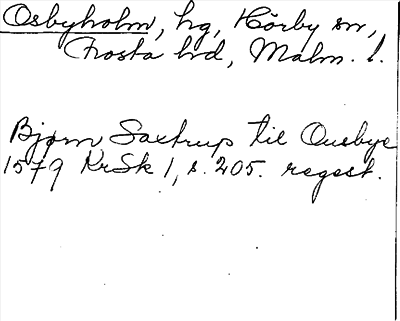 Osbyholm, hg, Hörby sn,
Frosta hd, Malm. l.
Bjørn Saxtrup til Ousbye
1579 KrSk 1, s. 205. regest.